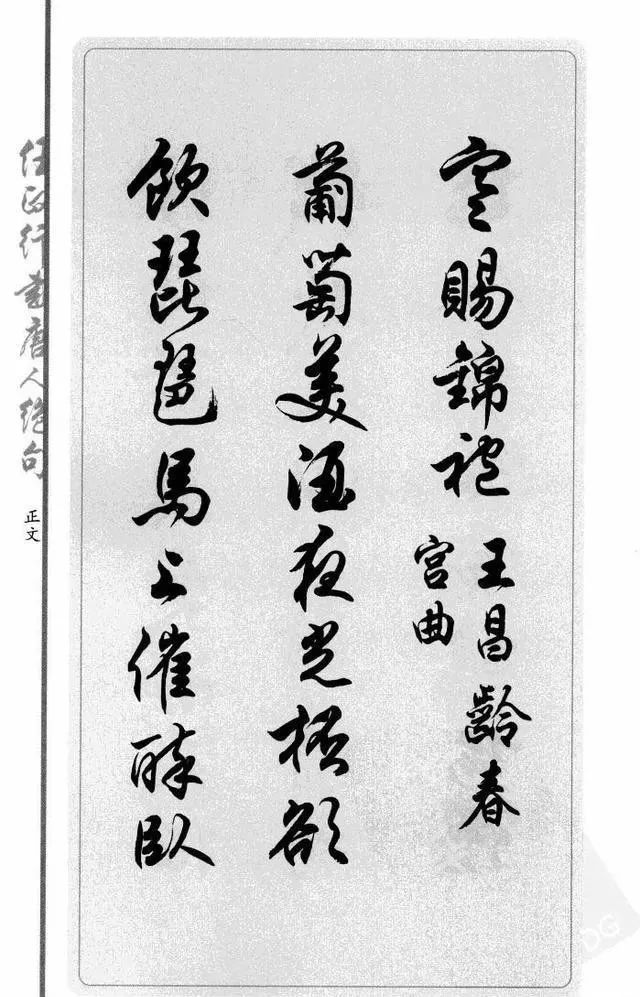 寒賜錦袍
王昌齡春
宮曲
葡萄美酒夜光杯欲
飲琵琶馬上催醉臥
任政行書唐人絕句
正文
DG